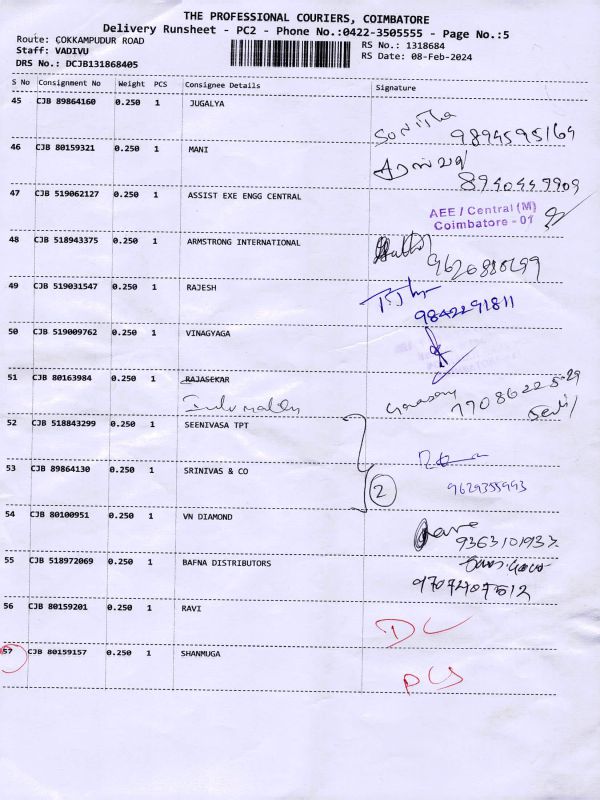 THE PROFESSIONAL COURIERS, COIMBATORE
Delivery Runsheet - PC2 - Phone No.:0422-3505555 - Page No.:5
Route: COKKAMPUDUR ROAD
RS No.: 1318684
Staff: VADIVU
RS Date: 08-Feb-2024
DRS No.: DCJB131868405
S No Consignment No Weight PCS Consignee Details Signature
45 CJB 89864160 0.250 1 JUGALYA
9894595164
46 CJB 80159321 0.250 1 MANI
8940449909
47 CJB 519062127 0.250 1 ASSIST EXE ENGG CENTRAL
AEE / Central (M)
Coimbatore - 01
48 CJB 518943375 0.250 1 ARMSTRONG INTERNATIONAL
49 CJB 519031547 0.250 1 RAJESH
9842291811
50 CJB 519009762 0.250 1 VINAGYAGA
51 CJB 80163984 0.250 1 RAJASEKAR
52 CJB 518843299 0.250 1 SEENIVASA TPT
53 CJB 89864130 0.250 1 SRINIVAS & CO
2
9629355993
54 CJB 80100951 0.250 1 VN DIAMOND
55 CJB 518972069 0.250 1 BAFNA DISTRIBUTORS
56 CJB 80159201 0.250 1 RAVI
DL
57 CJB 80159157 0.250 1 SHANMUGA